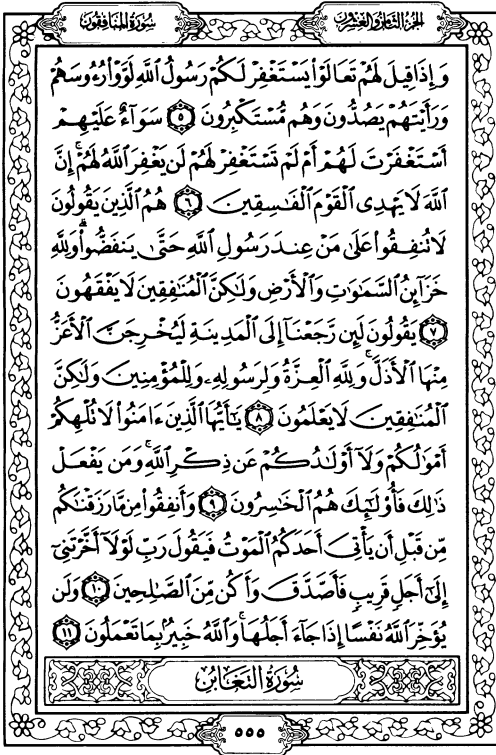 الجزء الثامن والعشرون
سورة المنافقون
وَإِذَا قِيلَ لَهُمْ تَعَالَوْا۟ يَسْتَغْفِرْ لَكُمْ رَسُولُ ٱللَّهِ لَوَّوْا۟ رُءُوسَهُمْ
وَرَأَيْتَهُمْ يَصُدُّونَ وَهُم مُّسْتَكْبِرُونَ ٥ سَوَآءٌ عَلَيْهِمْ
أَسْتَغْفَرْتَ لَهُمْ أَمْ لَمْ تَسْتَغْفِرْ لَهُمْ لَن يَغْفِرَ ٱللَّهُ لَهُمْ ۚ إِنَّ
ٱللَّهَ لَا يَهْدِى ٱلْقَوْمَ ٱلْفَـٰسِقِينَ ٦ هُمُ ٱلَّذِينَ يَقُولُونَ
لَا تُنفِقُوا۟ عَلَىٰ مَنْ عِندَ رَسُولِ ٱللَّهِ حَتَّىٰ يَنفَضُّوا۟ ۗ وَلِلَّهِ
خَزَآئِنُ ٱلسَّمَـٰوَٰتِ وَٱلْأَرْضِ وَلَـٰكِنَّ ٱلْمُنَـٰفِقِينَ لَا يَفْقَهُونَ
٧ يَقُولُونَ لَئِن رَّجَعْنَآ إِلَى ٱلْمَدِينَةِ لَيُخْرِجَنَّ ٱلْأَعَزُّ
مِنْهَا ٱلْأَذَلَّ ۚ وَلِلَّهِ ٱلْعِزَّةُ وَلِرَسُولِهِۦ وَلِلْمُؤْمِنِينَ وَلَـٰكِنَّ
ٱلْمُنَـٰفِقِينَ لَا يَعْلَمُونَ ٨ يَـٰٓأَيُّهَا ٱلَّذِينَ ءَامَنُوا۟ لَا تُلْهِكُمْ
أَمْوَٰلُكُمْ وَلَآ أَوْلَـٰدُكُمْ عَن ذِكْرِ ٱللَّهِ ۚ وَمَن يَفْعَلْ
ذَٰلِكَ فَأُو۟لَـٰٓئِكَ هُمُ ٱلْخَـٰسِرُونَ ٩ وَأَنفِقُوا۟ مِن مَّا رَزَقْنَـٰكُم
مِّن قَبْلِ أَن يَأْتِىَ أَحَدَكُمُ ٱلْمَوْتُ فَيَقُولَ رَبِّ لَوْلَآ أَخَّرْتَنِىٓ
إِلَىٰٓ أَجَلٍ قَرِيبٍ فَأَصَّدَّقَ وَأَكُن مِّنَ ٱلصَّـٰلِحِينَ ١٠ وَلَن
يُؤَخِّرَ ٱللَّهُ نَفْسًا إِذَا جَآءَ أَجَلُهَا ۚ وَٱللَّهُ خَبِيرٌۢ بِمَا تَعْمَلُونَ ١١
سُورَةُ التَّغَابُنِ
٥٥٥